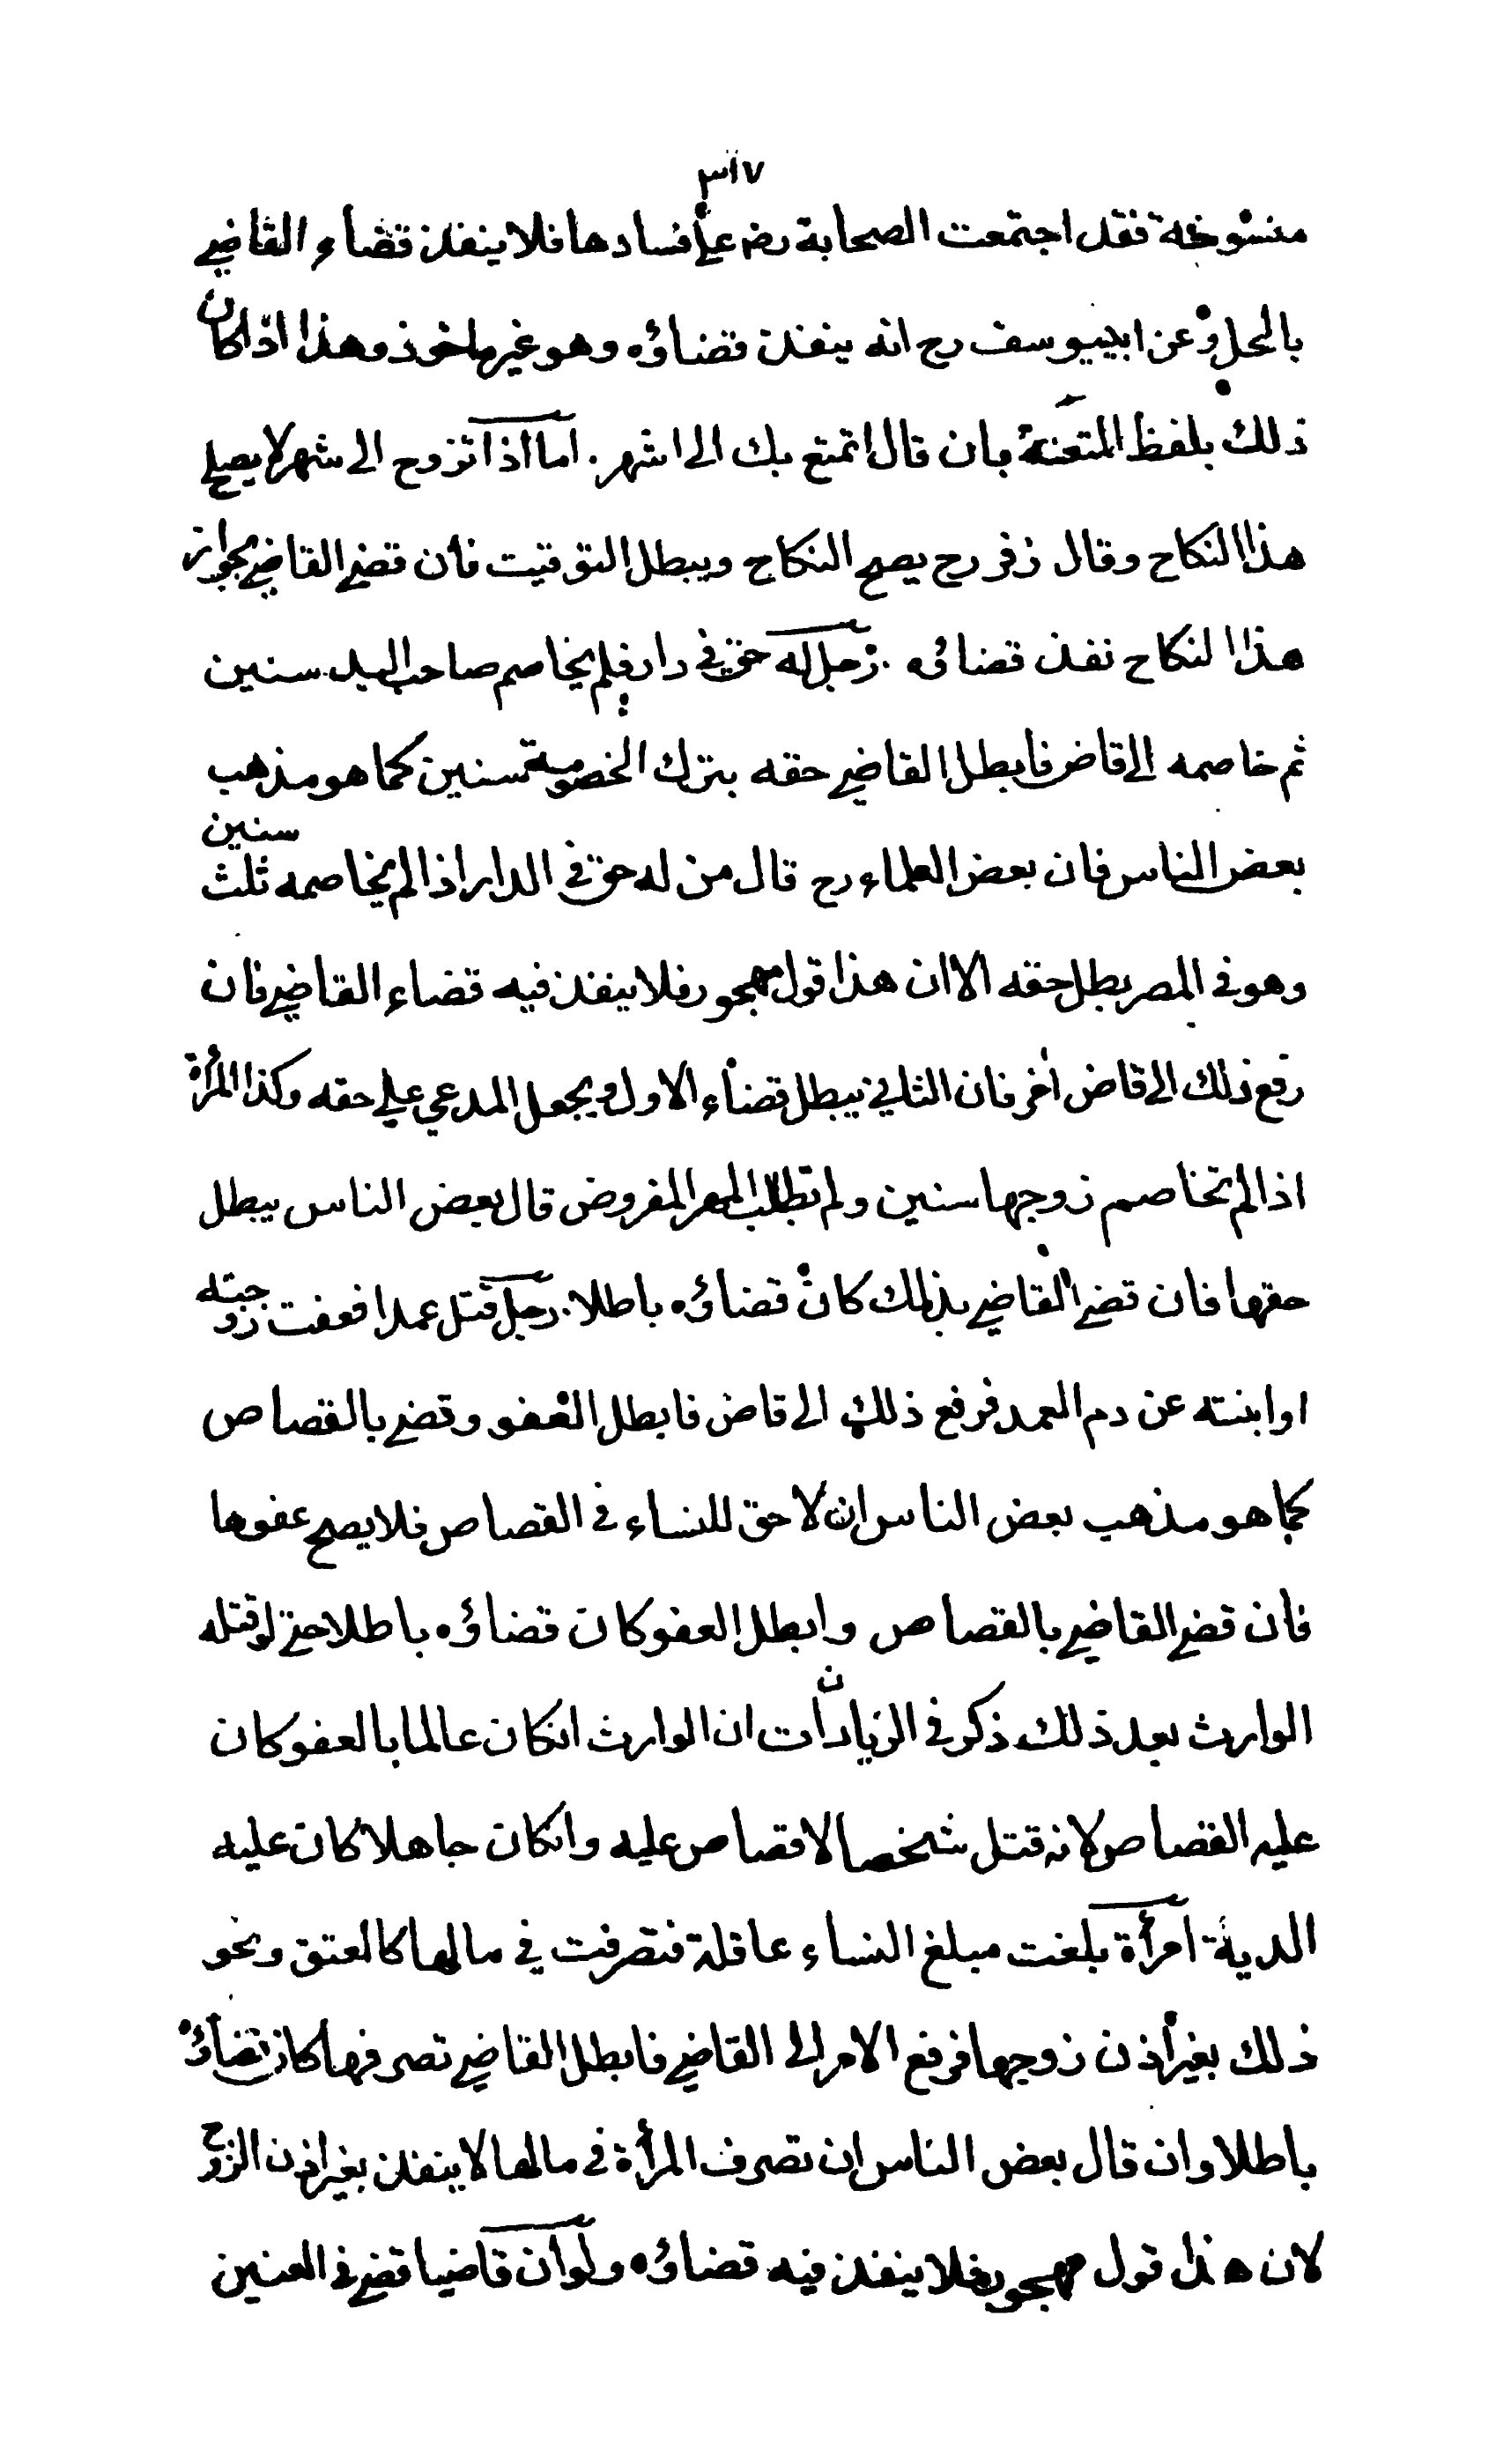 ٣١٧
منسوخة فقد اجتمعت الصحابة رض على فسادها فلا ينفذ قضاء القاضي
بالحل وعن ابي يوسف رح انه ينفذ قضاؤه وهو غير ماخوذ وهذا اذا كان
ذلك بلفظ المتعة بان قال اتمتع بك الى اشهر. اما اذا تزوج الى شهر لا يصح
هذا النكاح وقال زفر رح يصح النكاح ويبطل التوقيت فان قضى القاضي بجواز
هذا النكاح نفذ قضائه. رجل له حق في دار فلم يخاصم صاحب اليد سنين
ثم خاصمه الى قاض فابطل القاضي حقه بترك الخصومة سنين كما هو مذهب
بعض الناس فان بعض العلماء رح قال من له حق في الدار اذا لم يخاصمه ثلث سنين
وهو في المصر بطل حقه الا ان هذا قول مهجور فلا ينفذ فيه قضاء القاضي فان
رفع ذلك الى قاض اخر فان الثاني يبطل قضاء الاول ويجعل المدعي على حقه وكذا المرأة
اذا لم تخاصم زوجها سنين ولم تطلب المهر المفروض قال بعض الناس يبطل
حقها فان قضى القاضي بذلك كان قضاؤه باطلا. رجل قتل عمدا فعفت زوجته
او ابنته عن دم العمد فرفع ذلك الى قاض فابطل العفو وقضى بالقصاص
كما هو مذهب بعض الناس ان لا حق للنساء في القصاص فلا يصح عفوها
فان قضى القاضي بالقصاص وابطل العفو كان قضاؤه باطلا حتى لو قتله
الوارث بعد ذلك ذكر في الزيادات ان الوارث انكان عالما بالعفو كان
عليه القصاص لانه قتل شخصا لا قصاص عليه وانكان جاهلا كان عليه
الدية. امرأة بلغت مبلغ النساء عاقلة فتصرفت في مالها كالعتق ونحو
ذلك بغير اذن زوجها فرفع الامر الى القاضي فابطل القاضي تصرفها كان قضاؤه
باطلا وان قال بعض الناس ان تصرف المرأة في مالها لا ينفذ بغير اذن الزوج
لان هذا قول مهجور فلا ينفذ فيه قضاؤه ولو ان قاضيا قضى في العنين